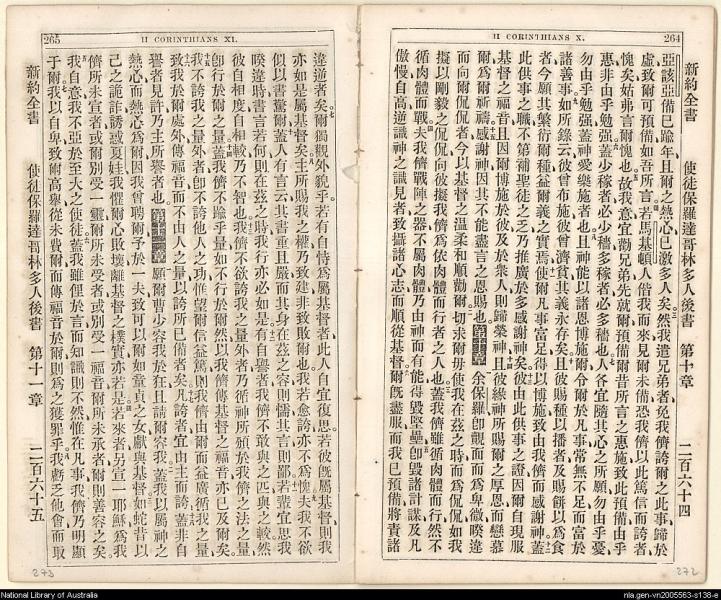 264
II CORINTHIANS X.
新約全書 使徒保羅達哥林多人後書 第十章 二百六十四
亞該亞備已踰年且爾之熱心已激多人矣然我遣兄弟者免我儕誇爾之此事歸於
虛致爾可預備如吾所言若馬基頓人偕我而來見爾未備恐我儕以此篤信而誇者
愧矣姑弗言爾愧也故我意宜勸兄弟先就爾預備爾昔所言之惠施致此預備由乎
惠非由乎勉強蓋少稼者必少穡多稼者必多穡也人各宜隨其心之所願勿由乎憂
勿由乎勉強蓋神愛樂施者也且神能以諸恩博施爾令爾於凡事常無不足而富於
諸善事如所錄云彼曾布施彼曾濟貧其義永存矣且彼賜種以播者及賜餅以爲食
者今願其繁衍爾種益爾義之實焉使爾凡事富足得以博施致由我儕而感謝神蓋
此供事之職不第補聖徒之乏乃推廣於多感謝神矣彼由此供事之證因爾自現服
基督之福音且因爾博施於彼及於衆人則歸榮神且彼緣神所賜爾之厚恩而戀慕
爾爲爾祈禱感謝神因其不能盡言之恩賜也第十章 余保羅卽覿面而爲卑微暌違
而向爾侃侃者今以基督之溫柔和順勸爾切求爾毋使我在茲之時而爲侃侃如我
擬以剛毅之侃侃向彼擬我儕爲依肉體而行者之人也蓋我儕雖循肉體而行然不
循肉體而戰夫我儕戰陣之器不屬肉體乃由神而有能得毀堅壘卽毀諸計謀及凡
傲慢自高逆識神之識見者致攝諸心志而順從基督爾既盡服而我已預備將責諸
265
II CORINTHIANS XI.
違逆者矣爾獨觀外貌乎若有自恃爲屬基督者此人自宜復思若彼既屬基督則我
亦如是屬基督矣主所賜我之權乃致建非致敗爾也我若愈誇亦不爲愧夫我不欲
似以書驚爾蓋人有言云其書重且嚴而其身在茲之容則懦其言則鄙若輩宜思我
暌違時書言若何則在茲之時我行亦必如是有自譽者我儕不敢與之匹與之較然
彼自相度自相較乃不智也我儕不欲誇我之量外者乃循神所頒於我儕之法之量
卽行於爾之量蓋我儕不踰乎量如不行於爾然以我儕傳基督之福音亦已及爾矣
我不誇我之量外者卽不誇他人之功惟望爾信益篤則我儕由爾而益廣循我之量
致我於爾處外傳福音而不由人之量以誇所已備者矣凡誇者宜由主而誇蓋非自
譽者見許乃主所譽者也第十一章 願爾曹少容我於狂且請爾容我蓋我以屬神之
熱心而熱心爲爾因我曾聘爾予於一夫致可以爾如童貞之女獻與基督如蛇昔以
己之詭詐誘惑夏娃我懼爾心敗壞離基督之樸實亦若是若來者另宣一耶穌爲我
儕所未宣者或爾別受一靈爾所未受者或別受一福音爾所未承者爾則善容之矣
我自意我不亞於至大之使徒蓋我雖俚於言而知識則不然惟在凡事我儕乃明顯
于爾我以自卑致爾高舉從未費爾而傳福音於爾則爲之獲罪乎我虧乏他會而取
新約全書 使徒保羅達哥林多人後書 第十一章 二百六十五
273
272
National Library of Australia
nla.gen-vn2005563-s138-e